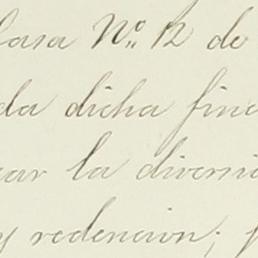 Casa Nº 12 de
da dicha finc
car la diversi
y redencion;